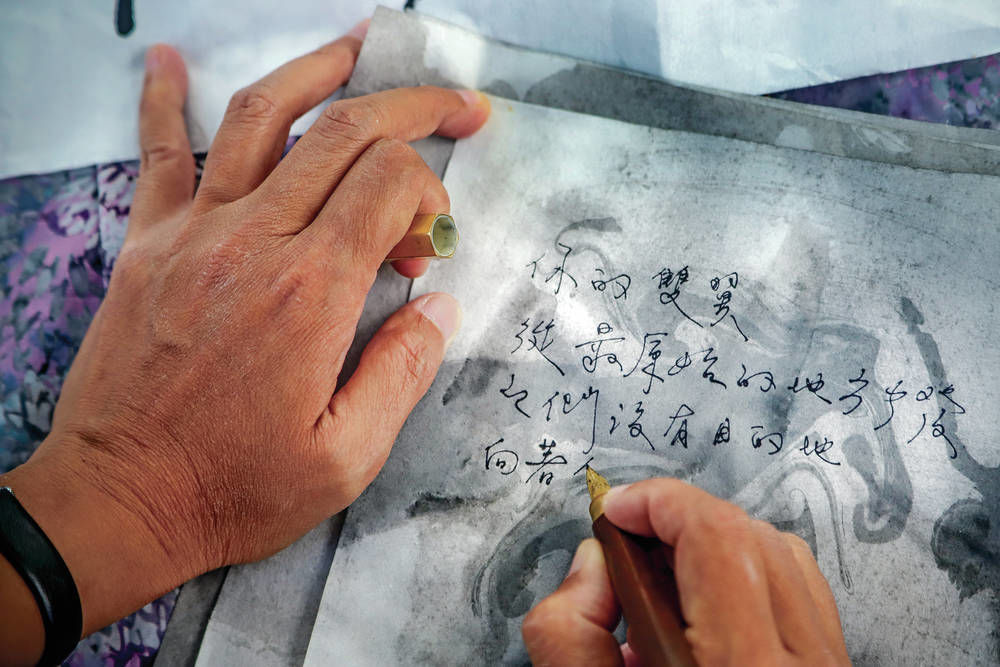 你的雙翼
從最原始的地方
它們沒有目的地
向著